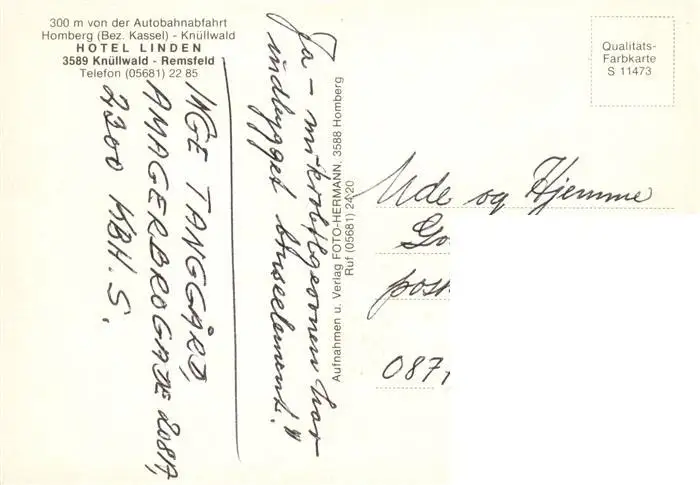 300 m von der Autobahnabfahrt
Homberg (Bez. Kassel) - Knüllwald
HOTEL LINDEN
3589 Knüllwald - Remsfeld
Telefon (05681) 22 85
Ja - mikrobølgeovnen har
indbygget
INGE TANGGÅRD,
AMAGERBROGADE
2300 KBH. S.
Aufnahmen u. Verlag FOTO-HERMANN, 3588 Homberg
Ruf (05681) 24 20
Qualitäts-
Farbkarte
S 11473
Ude og Hjemme
Go
post
087